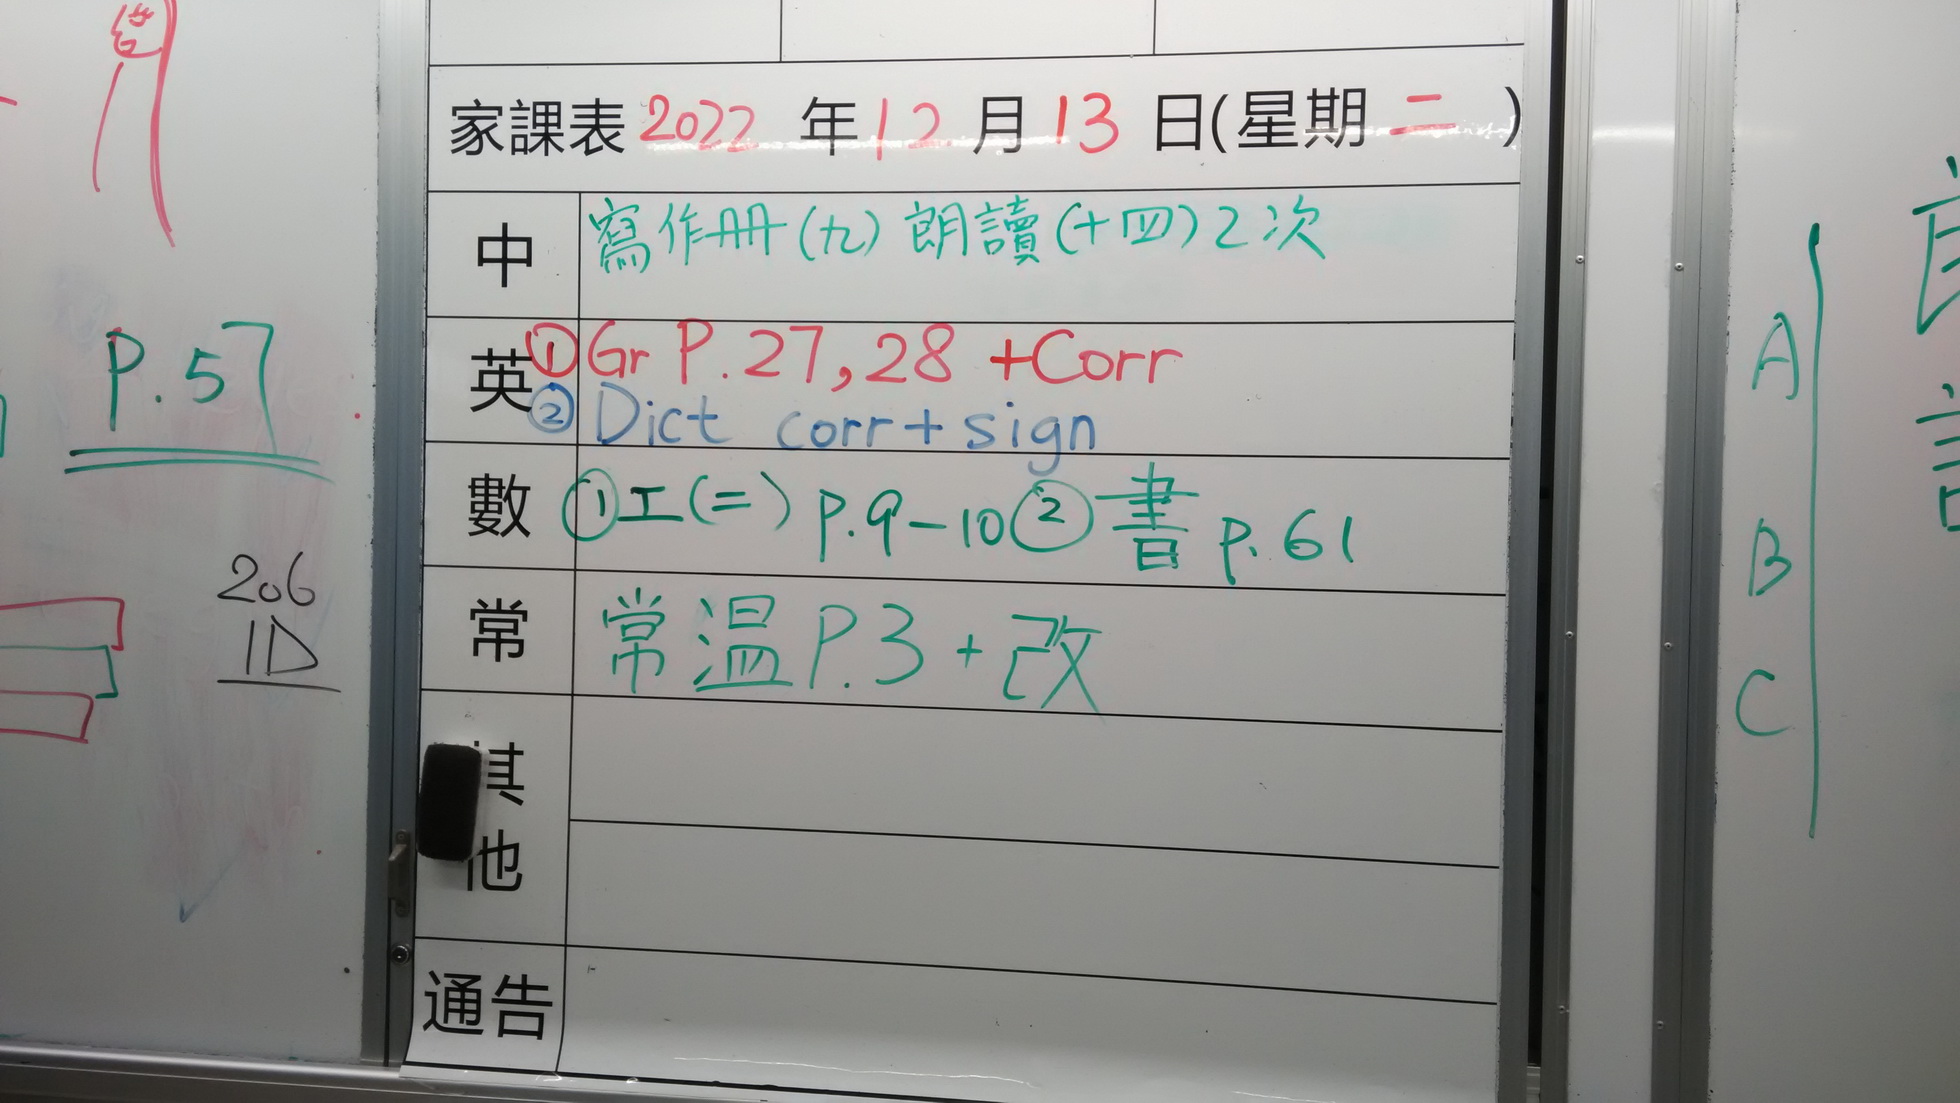 家課表 2022 年 12 月 13 日(星期 二 )
中 寫作冊(九) 朗讀(十四)2次
英 ①Gr P.27,28 +Corr
②Dict corr+sign
數 ①工(二) p.9-10 ②書 p.61
常 常溫 P.3 + 改
其他
通告
P.57
206
1D
A
B
C